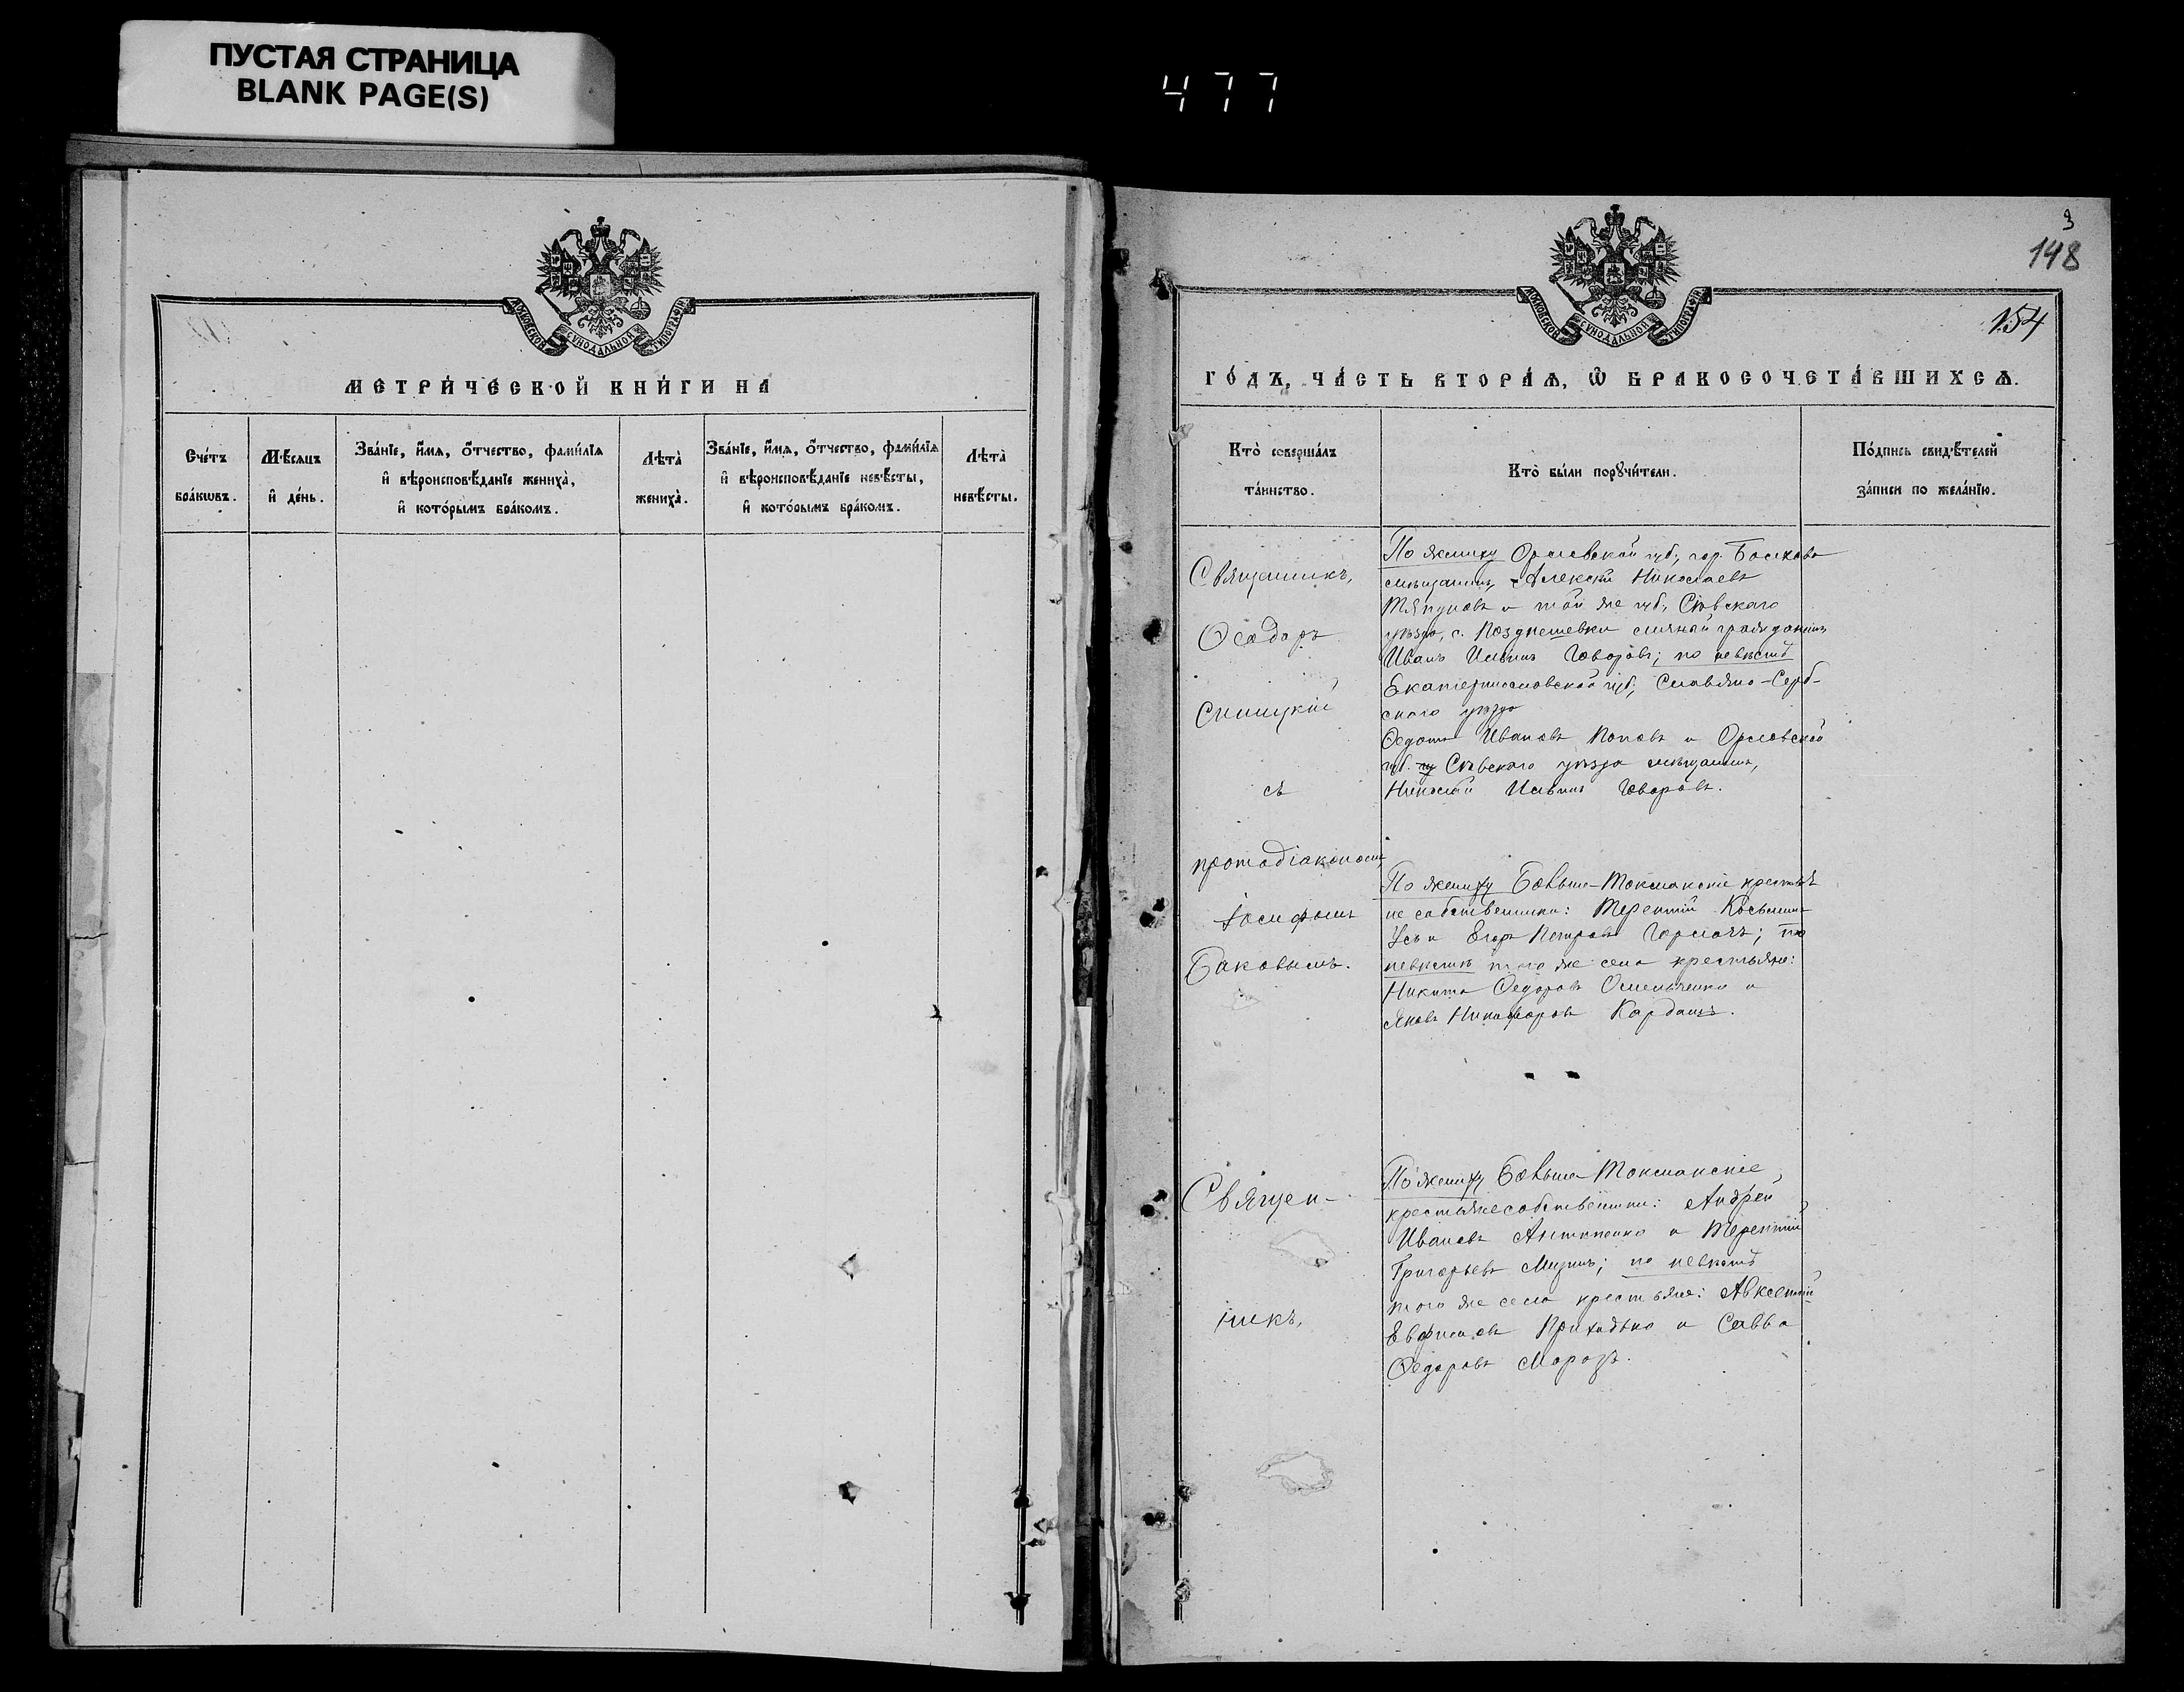 ПУСТАЯ СТРАНИЦА
BLANK PAGE(S)
477
МОСКОВСКОЙ СѴНОДАЛЬНОЙ ТИПОГРАФІИ
МЕТРИ́ЧЕСКОЙ КНИ́ГИ НА
Сче́тъ бра́кѡвъ.
Мѣ́сяцъ и҆ де́нь.
Зва́нїе, и҆́мѧ, о҆́тчество, фами́лїѧ и҆ вѣроисповѣ́данїе жениха̀, и҆ кото́рымъ бра́комъ.
Лѣта̀ жениха̀.
Зва́нїе, и҆́мѧ, о҆́тчество, фами́лїѧ и҆ вѣроисповѣ́данїе невѣ́сты, и҆ кото́рымъ бра́комъ.
Лѣта̀ невѣ́сты.
3
148
МОСКОВСКОЙ СѴНОДАЛЬНОЙ ТИПОГРАФІИ
154
ГО́ДЪ, ЧА́СТЬ ВТОРА́Ѧ, Ѽ БРАКОСОЧЕТА́ВШИХСѦ.
Кто̀ соверша́лъ
та́инство.
Кто̀ бы́ли порꙋчи́тели.
По́дпись свидѣ́телей
за́писи по жела́нїю.
Священникъ,
Ѳеодоръ
Синицкій
съ
протодіакономъ
Іосифомъ
Баковымъ.
По жениху Орловской губ., гор. Болхова
мѣщанинъ, Алексѣй Николаевъ
Тяпуновъ и той же губ., Сѣвскаго
уѣзда, с. Позднешевки личной гражданинъ
Иванъ Ильинъ Говоровъ; по невѣстѣ
Екатеринославской губ., Славяно-Серб-
скаго уѣзда
Ѳедотъ Ивановъ Поповъ и Орловской
губ. Сѣвскаго уѣзда мѣщанинъ,
Николай Ильинъ Говоровъ.
По жениху Больше-Токмакскіе крестья
не собственники: Терентій Косьминъ
Усъ и Егоръ Петровъ Горлачъ; по
невѣстѣ того же села крестьяне:
Никита Ѳедоровъ Омельченко и
Яковъ Никифоровъ Кардашъ.
Священ-
никъ,
По жениху Больше-Токмакскіе
крестьяне собственники: Андрей
Ивановъ Антипенко и Терентій
Григорьевъ Мизинъ; по невѣстѣ
того же села крестьяне: Авксентій
Евфимовъ Приходько и Савва
Ѳедоровъ Морозъ.